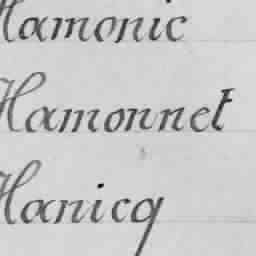 Hamonic
Hamonnet
Hanicq